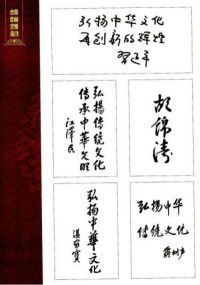 弘扬中华文化
再创新的辉煌
习近平
弘揚傳統文化
傳承中華文明
江泽民
胡錦濤
弘扬中華文化
温家寶
弘扬中华
传统文化